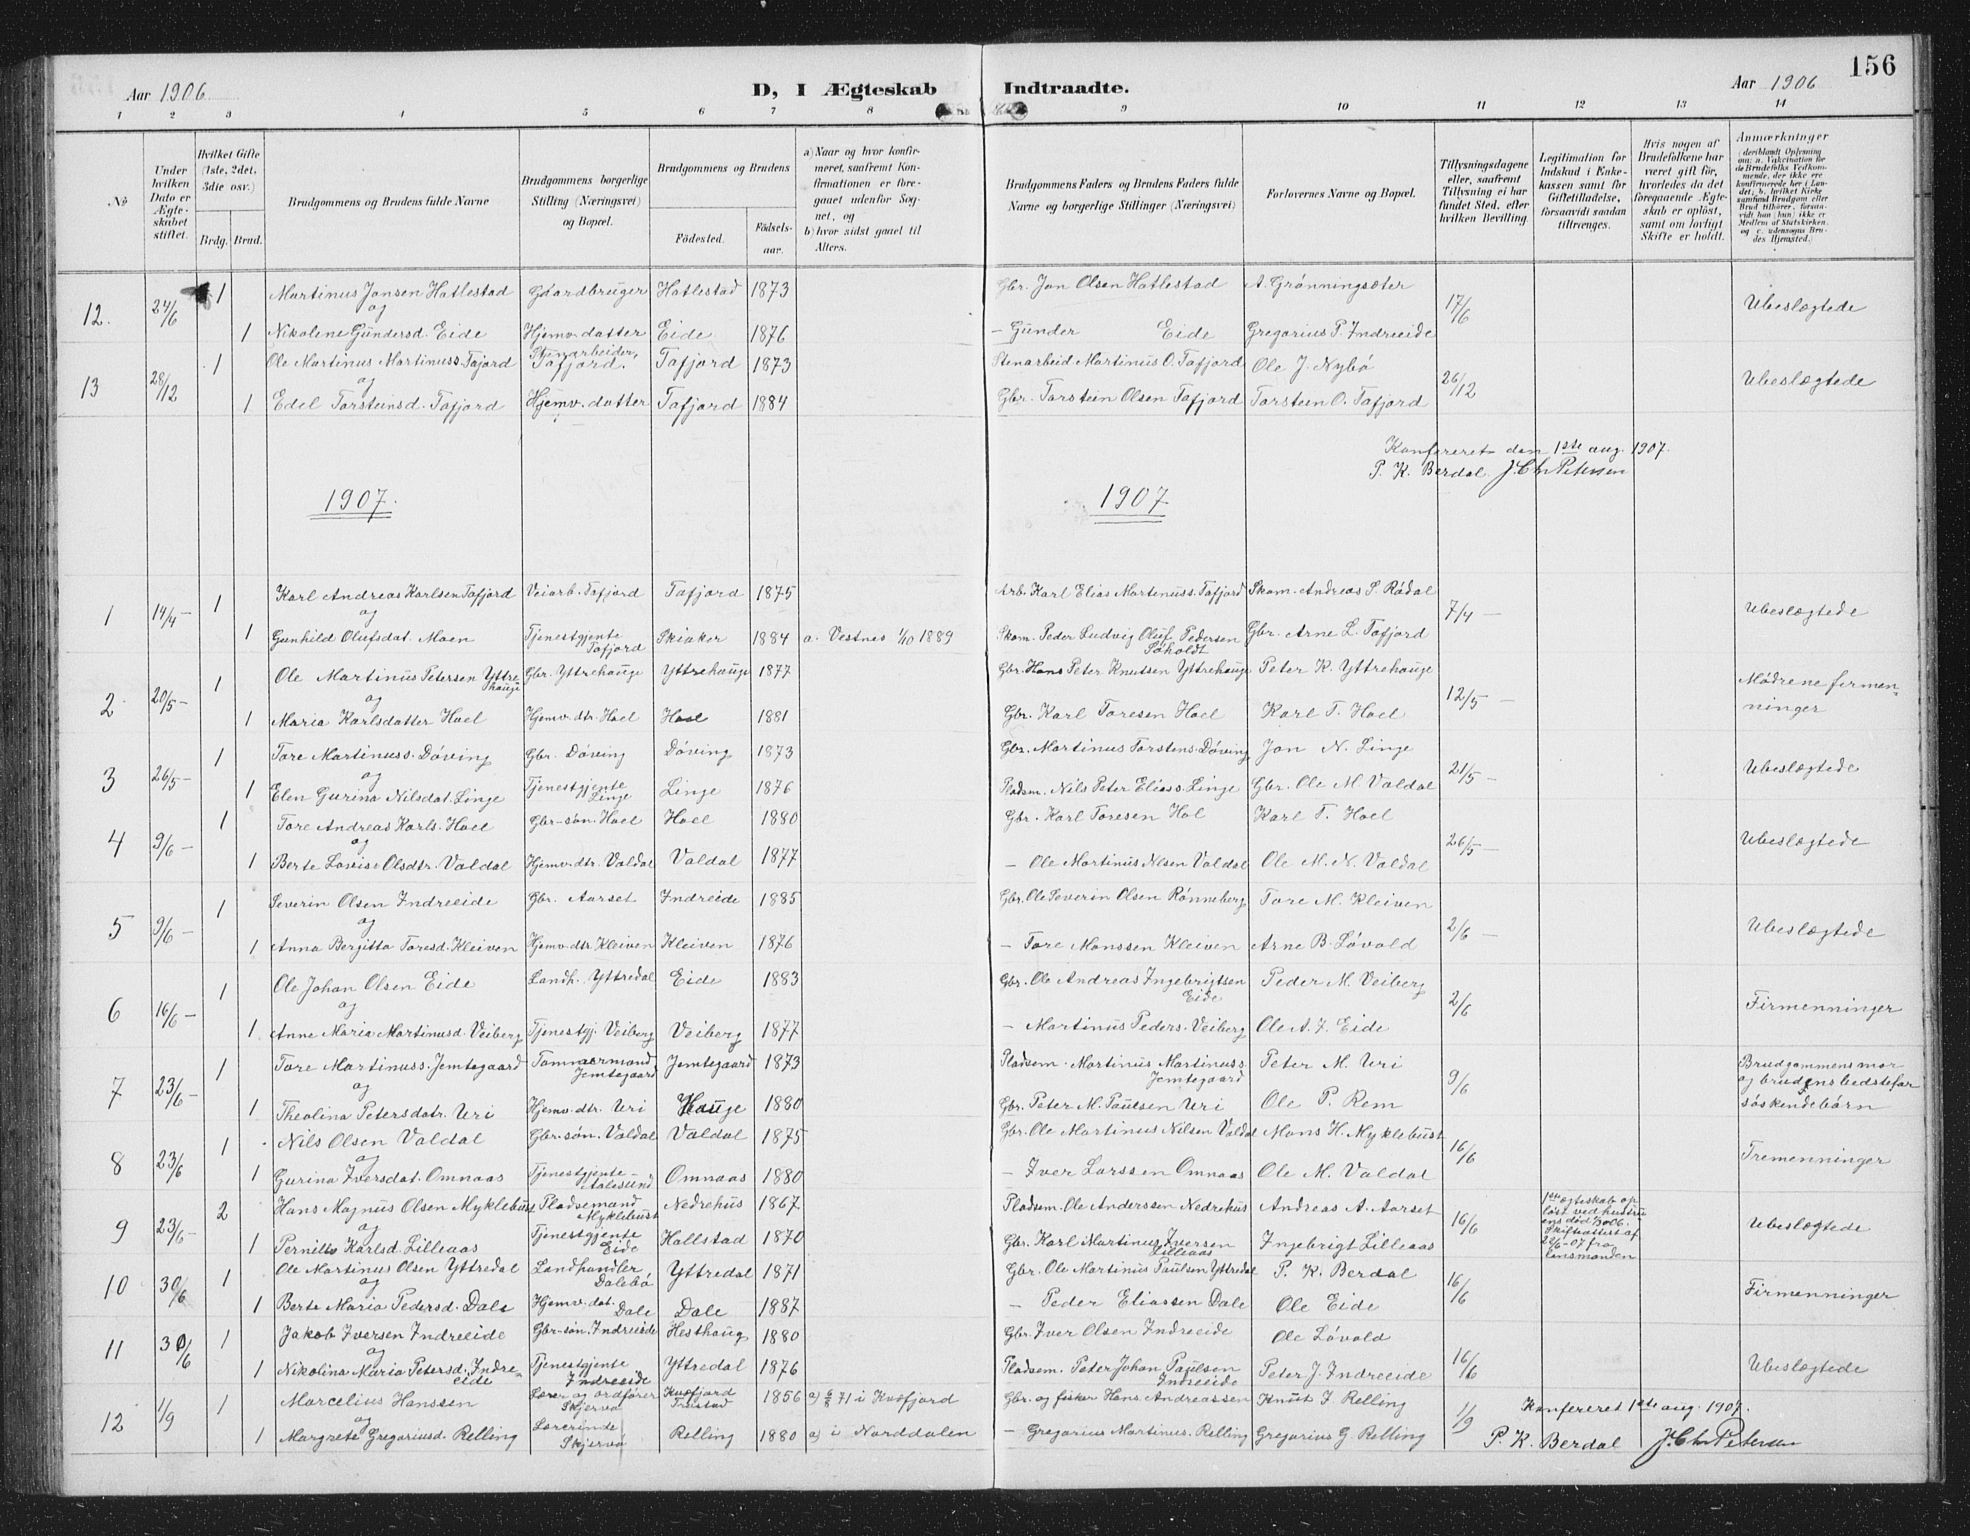 156
Aar 1906
D, I Ægteskab Indtraadte.
Aar 1906
1 2 3 4 5 6 7 8 9 10 11 12 13 14
No
Under hvilken Dato er Ægteskabet stiftet.
Hvilket Gifte (1ste, 2det, 3die osv.)
Brdg. Brud.
Brudgommens og Brudens fulde Navne
Brudgommens borgerlige Stilling (Næringsvei) og Bopæl.
Brudgommens og Brudens
Fødested. Fødselsaar.
a) Naar og hvor konfirmeret, saafremt Konfirmationen er foregaaet udenfor Sognet, og
b) hvor sidst gaaet til Alters.
Brudgommens Faders og Brudens Faders fulde Navne og borgerlige Stillinger (Næringsvei)
Forlovernes Navne og Bopæl.
Tillysningsdagene eller, saafremt Tillysning ei har fundet Sted, efter hvilken Bevilling.
Legitimation for Indskud i Enkekassen samt for Giftetilladelse, forsaavidt saadan tiltrænges.
Hvis nogen af Brudefolkene har været gift før, hvorledes da det foregaaende Ægteskab er opløst, samt om lovligt Skifte er holdt.
Anmærkninger (deriblandt Oplysning om: a. Vakcination for de Brudefolks Vedkommende, der ikke ere konfirmerede her i Landet; b. hvilket Kirkesamfund Brudgom eller Brud tilhører, forsaavidt han (hun) ikke er Medlem af Statskirken, og c. udensogns Brudes Hjemsted.)
12. 24/6 1 Martinus Jonsen Hatlestad Gaardbruger Hatlestad 1873 Gbr. Jon Olsen Hatlestad A. Grønningsæter 17/6 Ubeslægtede
og
1 Nikoline Gundersd. Eide Hjemv. datter Eide 1876 - Gunder Eide Gregorius P. Indreeide
13 28/12 1 Ole Martinus Martinuss. Tajord Stenarbeider, Tafjord. Tafjord 1873 Stenarbeid Martinus O. Tafjord Ole J. Nybø 26/12 Ubeslægtede
og
1 Edel Torsteinsd. Tafjord Hjemv. datter Tafjord 1884 Gbr. Torstein Olsen Tafjord Torstein O. Tafjord
Konfereret den 1ste aug. 1907.
P. K. Berdal J. Chr Petersen
1907. 1907.
1 14/4 - 1 Karl Andreas Karlsen Tafjord Veiarb. Tafjord Tafjord 1875 Arb. Karl Elias Martinuss. Tafjord Skom. Andreas S. Rødal 7/4 - Ubeslægtede
og
1 Gunhild Olufsdat. Moen Tjenestgjente Tafjord Skiaker 1884 a. Vestnes 1/10 1889 Skom. Peder Ludvig Oluf Pedersen Søholdt Gbr. Arne L. Tafjord
2 20/5 - 1 Ole Martinus Petersen Yttrehauge Gbr. Yttrehauge Yttrehauge 1877 Gbr. Hans Peter Knutsen Yttrehauge Peter K. Yttrehauge 12/5 - Mødrene firmenninger
og
1 Maria Karlsdatter Hoel Hjemv. dtr. Hoel Hoel 1881 Gbr. Karl Toresen Hoel Karl T. Hoel
3 26/5 - 1 Tore Martinuss. Døving Gbr. Døving Døving 1873 Gbr. Martinus Torstens. Døving Jon N. Linge 21/5 - Ubeslægtede
og
1 Elen Gurina Nilsdat. Linge Tjenestgjente Linge Linge 1876 Pladsm. Nils Peter Eliass. Linge Gbr. Ole M. Valdal
4 9/6 - 1 Tore Andreas Karls. Hoel Gbr-søn. Hoel Hoel 1880 Gbr. Karl Toresen Hol Karl T. Hoel 26/5 - Ubeslægtede
og
1 Berte Lovise Olsdtr. Valdal Hjemv. dtr. Valdal Valdal 1877 - Ole Martinus Nlsen Valdal Ole M. N. Valdal
5 9/6 - 1 Severin Olsen Indreeide Gbr. Aarset Indreeide 1885 Gbr. Ole Severin Olsen Rønneberg Tore M. Kleiven 2/6 - Ubeslægtede
og
1 Anna Bergitta Toresd. Kleiven Hjemv. dtr. Kleiven Kleiven 1876 - Tore Monssen Kleiven Arne B. Løvold
6 16/6 - 1 Ole Johan Olsen Eide Landh. Yttredal Eide 1883 Gbr. Ole Andreas Ingebrigtsen Eide Peder M. Veiberg 2/6 Firmenninger
og
1 Anne Maria Martinusd. Veiberg Tjenestgj. Veiberg Veiberg 1877 - Martinus Peders. Veiberg Ole A. J. Eide
7 23/6 - 1 Tore Martinuss. Jemtegaard Tømmermand Jemtegaard Jemtegaard 1873 Pladsem. Martinus Martinuss. Jemtegaard Peter M. Uri 9/6 Brudgommens mor og brudens bedstefar søskendebørn
og
1 Theolina Petersdatr. Uri Hjemv. dtr. Uri Hauge 1880 Gbr. Peter M. Paulsen Uri Ole P. Rem
8 23/6 1 Nils Olsen Valdal Gbr-søn. Valdal Valdal 1875 Gbr. Ole Martinus Nilsen Valdal Mons H. Myklebust 16/6 Tremenninger
og
1 Gurina Iversdat. Omnaas Tjenestgjente - Aalesund Omnaas 1880 - Iver Larssen Omnaas Ole M. Valdal
9 23/6 - 2 Hans Magnus Olsen Myklebust Pladsemand Myklebust Nedrehus 1867 Pladsm. Ole Anderssen Nedrehus Andreas A. Aarset 16/6 1ste ægteskab opløst ved hustruens død 1906. Skifteattest af 20/6-07 fra lensmanden Ubeslægtede
og
1 Pernille Karlsd. Lilleaas Tjenestgjente Eide Hallstad 1870 Gbr. Karl Martinus Iversen Lilleaas Ingebrigt Lilleaas
10 30/6 1 Ole Martinus Olsen Yttredal Landhandler Dalebø Yttredal 1871 Gbr. Ole Martinus Paulsen Yttredal P. K. Berdal 16/6 Firmenninger
og
1 Berte Maria Pedersd. Dale Hjemv. dat. Dale Dale 1887 - Peder Eliassen Dale Ole Eide
11 30/6 1 Jakob Iversen Indreeide Gbr-søn. Indreeide Hesthaug 1880 Gbr. Iver Olsen Indreeide Ole Løvold 16/6 Ubeslægtede
og
1 Nikolina Maria Petersd. Indreeide Tjenestgjente Indreeide Yttredal 1876 Pladsem. Peter Johan Paulsen Indreeide Peter J. Indreeide
12 1/9 1 Marcelius Hanssen Lærer og ordfører Skjervø Kvæfjord 1856 a) 71 i Kvæfjord Gbr. og fisker Hans Andreassen Knut J. Relling 1/9 Konfereret 1ste aug. 1907.
og
1 Margrete Gregoriusd. Relling Lærerinde Skjervø Relling 1880 a) i Norddalen - Gregorius Martinus. Relling Gregorius G. Relling P. K. Berdal J. Chr Petersen